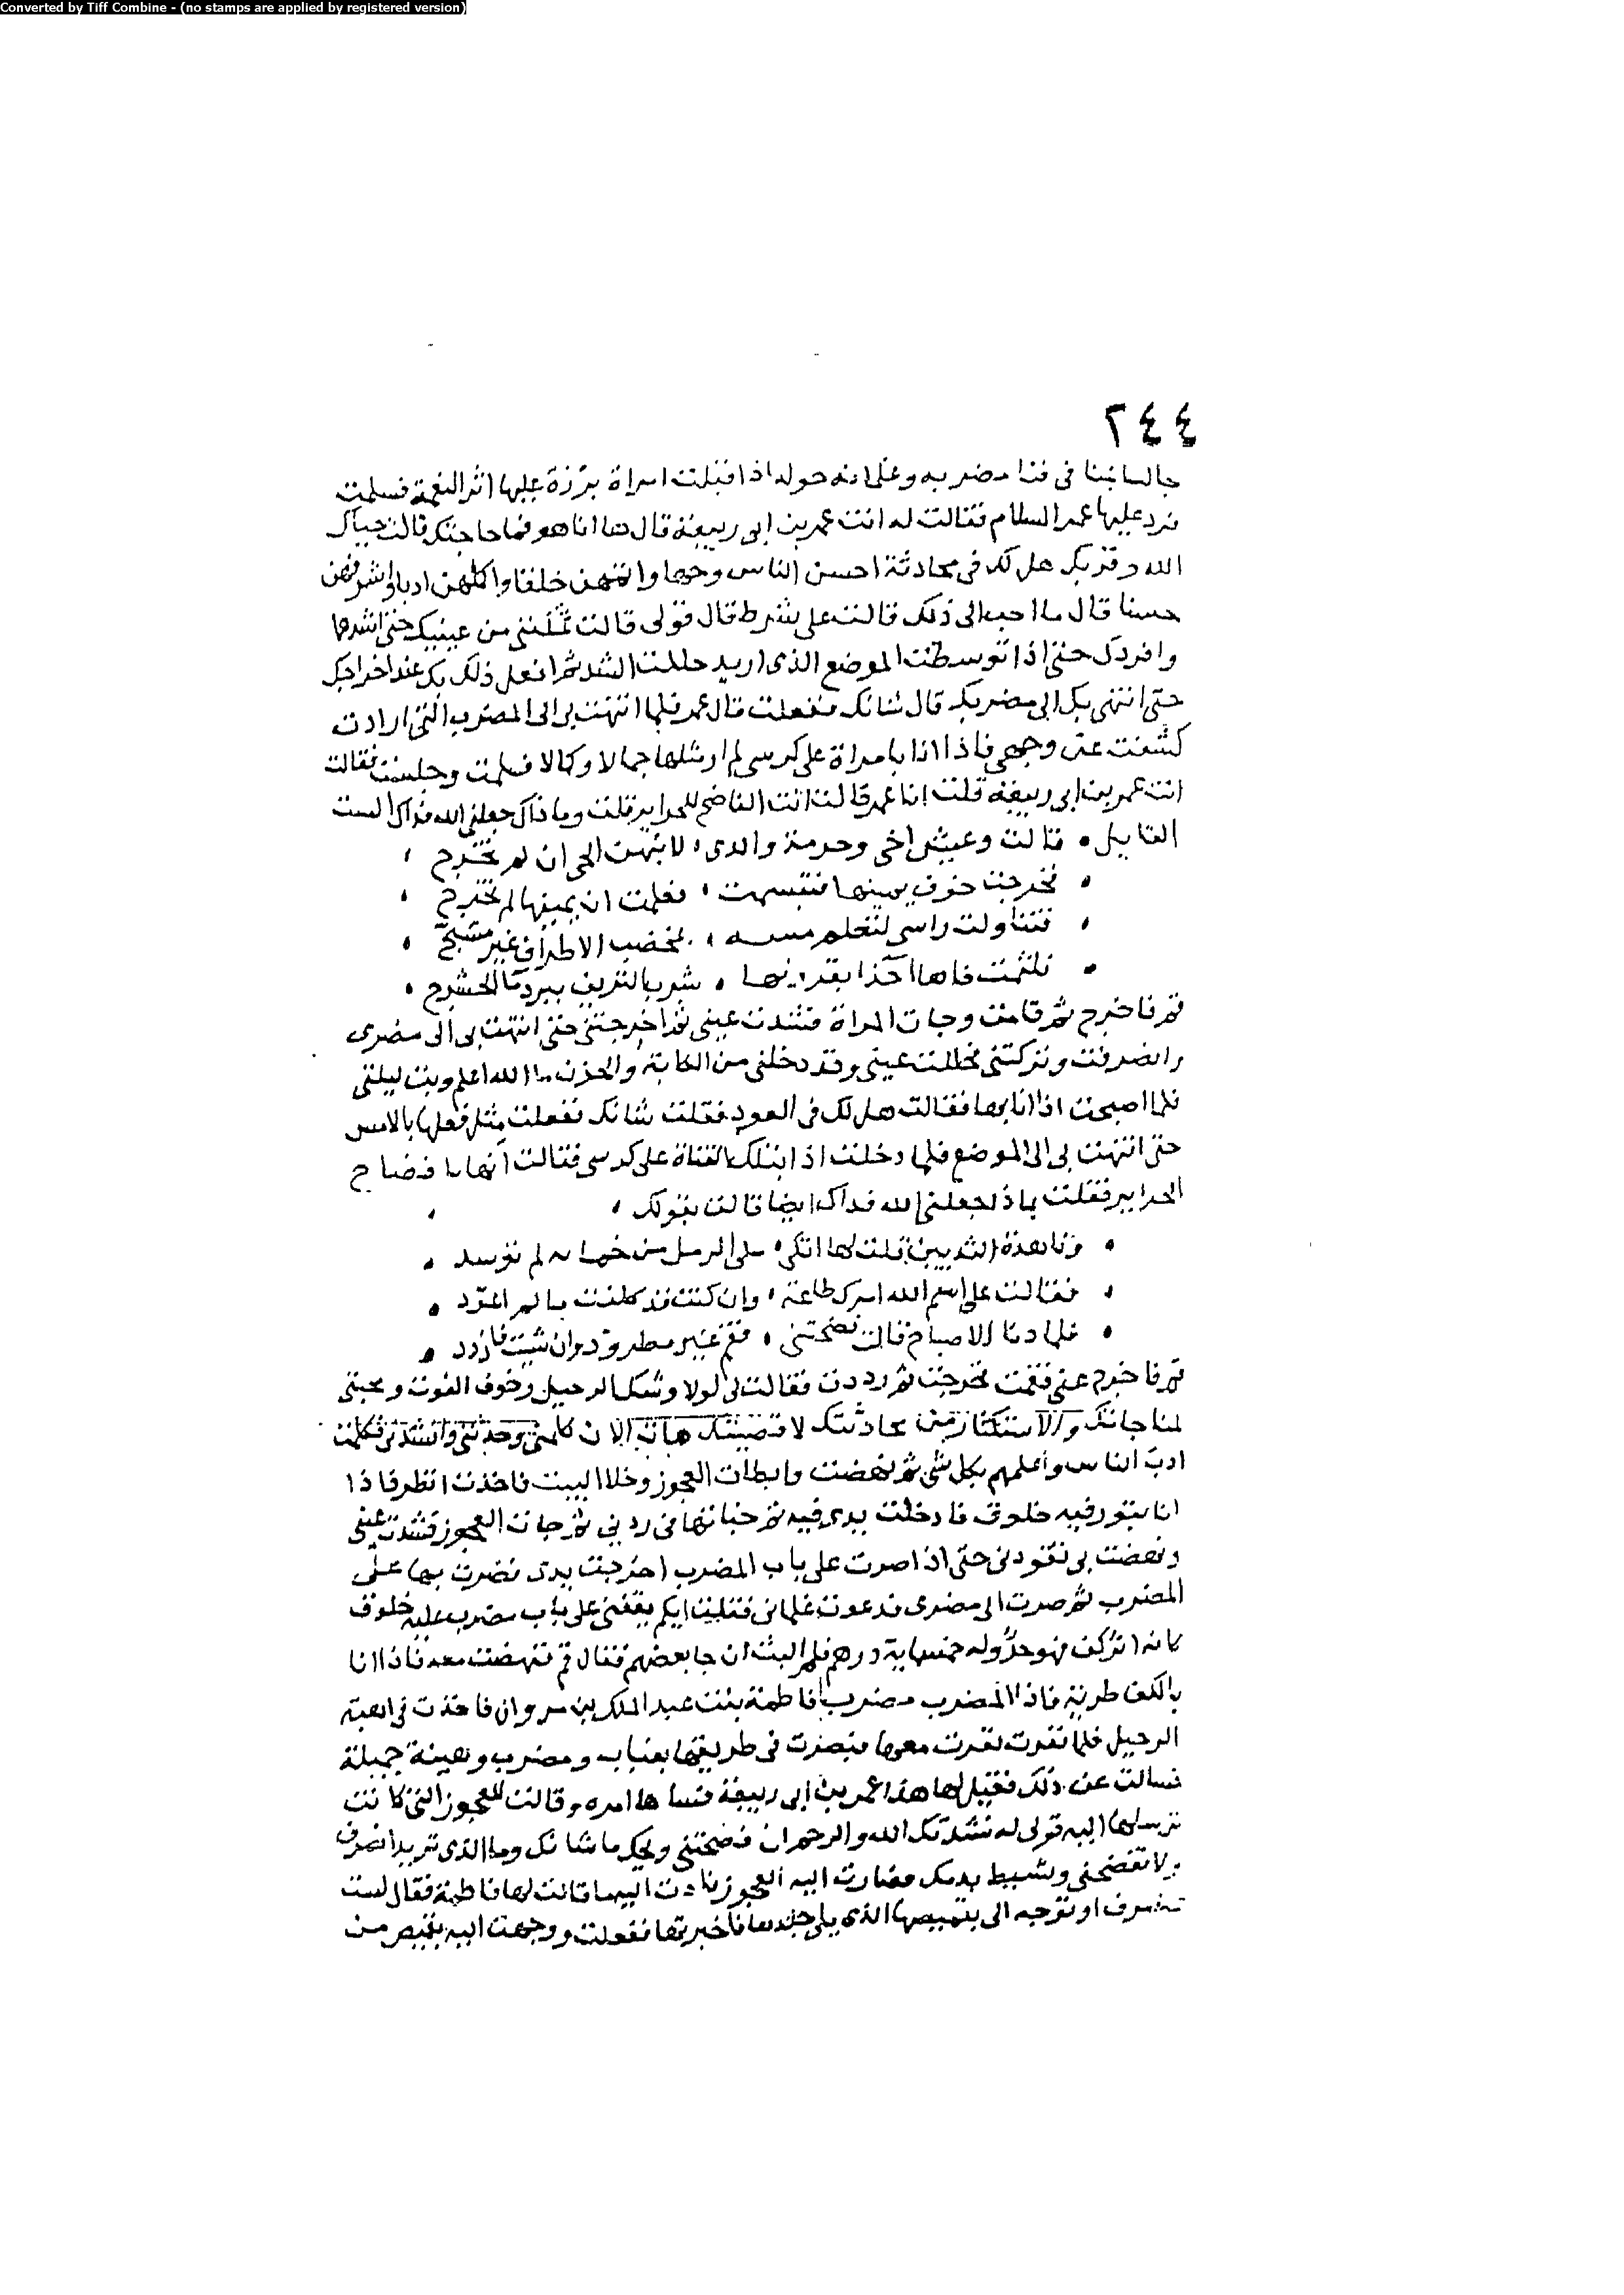 Converted by Tiff Combine - (no stamps are applied by registered version)
٢٤٤
جالسا بمنا فى فنا مضربه وغلمانه حوله اذا قبلت امراة برزة عليها اثر النعمة فسلمت
فرد عليها عمر السلام فقالت له انت عمر بن ابى ربيعة قال ها انا هو فما حاجتك قالت حياك
الله وقربك هل لك فى محادثة احسن الناس وجها واتمهن خلقا واكملهن ادبا واشرفهن
حسبا قال ما احب الى ذلك قالت على شرط قال قولى قالت تمكننى من عينيك حتى اشدهما
واقودك حتى اذا توسطت الموضع الذى اريد حللت الشد ثم افعل ذلك بك عند اخراجك
حتى انتهى بك الى مضربك قال شانك ففعلت قال عمر فلما انتهت بى الى المضرب التى ارادت
كشفت عن وجهى فاذا انا بامراة على كرسى لم ار مثلها جمالا وكمالا فسلمت وجلست فقالت
انت عمر بن ابى ربيعة قلت انا عمر قالت انت الفاضح للحراير قلت وما ذاك جعلنى الله فداك الست
القايل • قالت وعيش اخى وحرمة والدى ، لانبهن الحى ان لم تخرج ،
• فخرجت خوف يمينها فتبسمت ، فعلمت ان يمينها لم تحرج ،
، فتناولت راسى لتعلم مسه ، بمخضب الاطراف غير مشنج ،
• فلثمت فاها اخذا بقرونها ، شرب النزيف ببرد ما الحشرج ،
قم فاخرج ثم قامت وجات المراة فشدت عينى ثم اخرجتنى حتى انتهت بى الى مضربى
وانصرفت وتركتنى فحللت عينى وقد دخلنى من الكابة والحزن ما الله اعلم وبت ليلتى
فلما اصبحت اذا انا بها فقالت هل لك فى العود فقلت شانك ففعلت مثل فعلها بالامس
حتى انتهت بى الى الموضع فلما دخلت اذا بتلك الفتاة على كرسى فقالت ايها يا فضاح
الحراير فقلت بماذا جعلنى الله فداك ايضا قالت بقولك ،
• وناهدة الثديين قلت لها اتكى ، على الرمل من لم توسد ،
، فقالت على اسم الله امرك طاعة ، وان كنت قد كلفت ما لم اعود •
• فلما دنا الاصباح قالت فضحتنى ، فقم غير مطرود وان شيت فازدد •
قم فاخرج عنى فقمت فخرجت ثم رددت فقالت لى لولا وشك الرحيل وخوف الفوت ومحبتى
لمناجاتك والاستكثار من محادثتك لاقصيتك هات الان كلمنى وحدثنى وانشدنى فكلمت
ادب الناس واعلمهم بكل شى ثم نهضت وابطات العجوز وخلا البيت فاخذت انظر فاذا
انا بتور فيه خلوق فادخلت يدى فيه ثم خباتها فى ردنى ثم جات العجوز فشدت عينى
ونهضت بى تقودنى حتى اذا صرت على باب المضرب اخرجت يدى فضربت بها على
المضرب ثم صرت الى مضربى فدعوت غلمانى فقلت ايكم يقفنى على باب مضرب عليه خلوق
كانه اثر كف فهو حر وله خمسماية درهم فلم البث ان جا بعضهم فقال قم فنهضت معه فاذا انا
بالكف طرية فاذا المضرب مضرب فاطمة بنت عبد الملك بن مروان فاخذت فى اهبة
الرحيل فلما نفرت نفرت معها فبصرت فى طريقها بقباب ومضرب وهيئة جميلة
فسالت عن ذلك فقيل لها هذا عمر بن ابى ربيعة فساها امره وقالت للعجوز التى كانت
ترسلها اليه قولى له نشدتك الله والرحم ان فضحتنى ويحك ما شانك وما الذى تريد انصرف
ولا تفضحنى وتشيط بدمك فصارت اليه العجوز فادت اليه ما قالت لها فاطمة فقال لست
منصرف او توجه الى بقميصها الذى يلى جلدها فاخبرتها ففعلت ووجهت اليه بقميص من